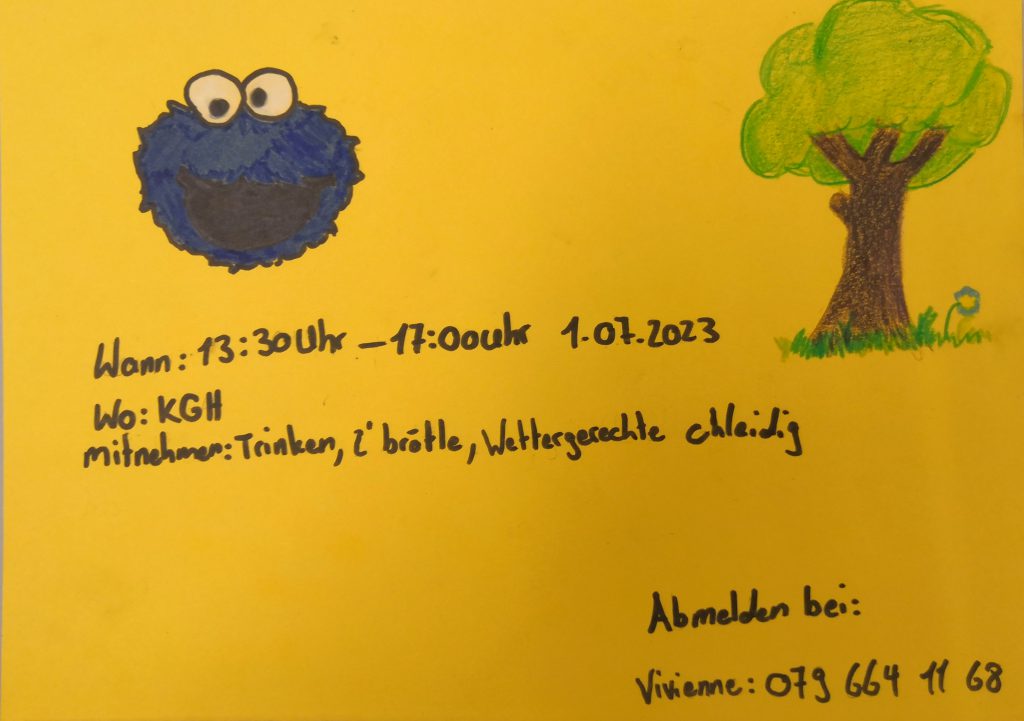 Wann: 13:30Uhr – 17:00uhr 1.07.2023
Wo: KGH
mitnehmen: Trinken, Z' brötle, Wettergerechte chleidig
Abmelden bei:
Vivienne: 079 664 11 68